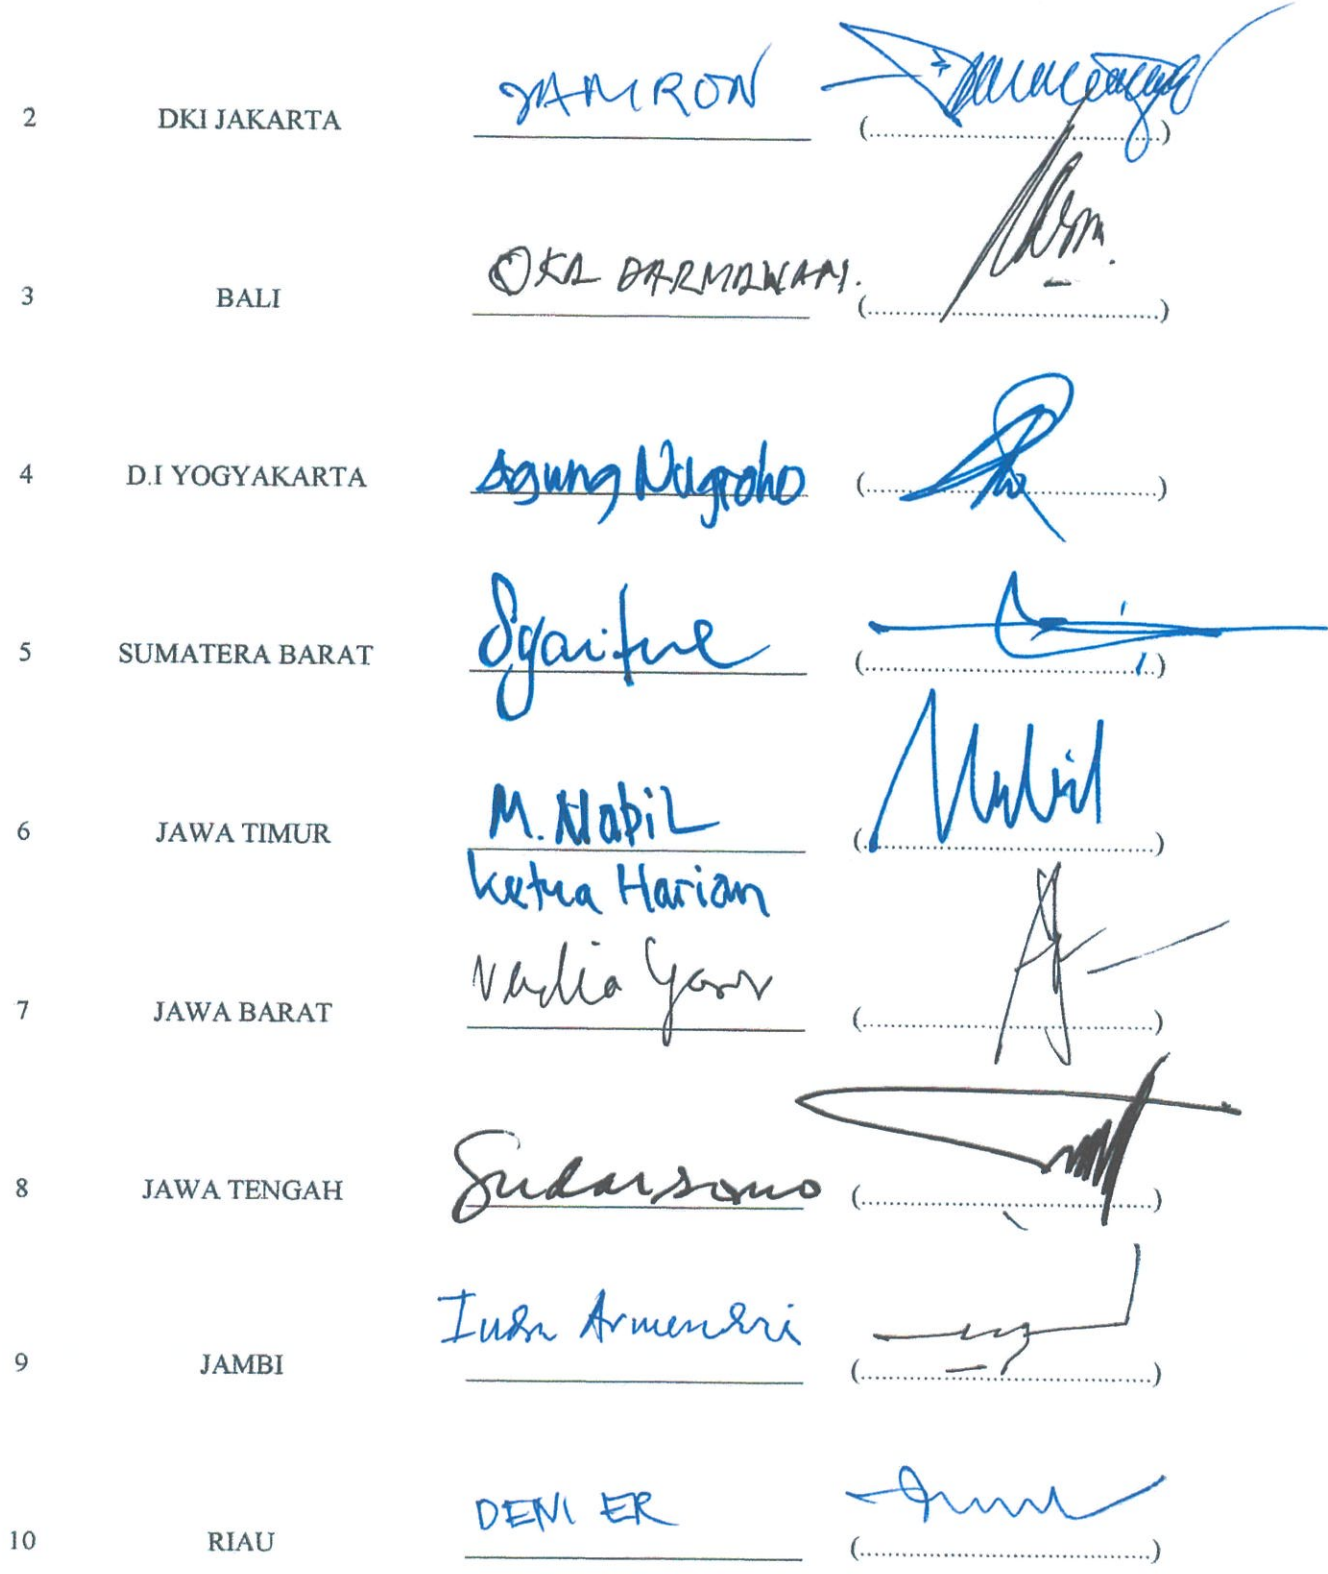 2 DKI JAKARTA JAMRON (....................)
3 BALI OKA DARMAWAN. (....................)
4 D.I YOGYAKARTA Agung Nugroho (....................)
5 SUMATERA BARAT Syaiful (....................)
6 JAWA TIMUR M. Nabil (....................)
Ketua Harian
7 JAWA BARAT (....................)
8 JAWA TENGAH Sudarsono (....................)
9 JAMBI Armendri (....................)
10 RIAU DENI ER (....................)